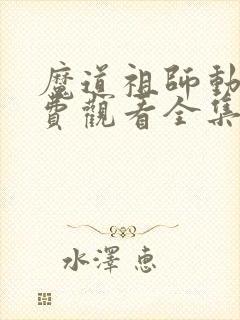 魔道祖師動
費觀看全集
水澤惠